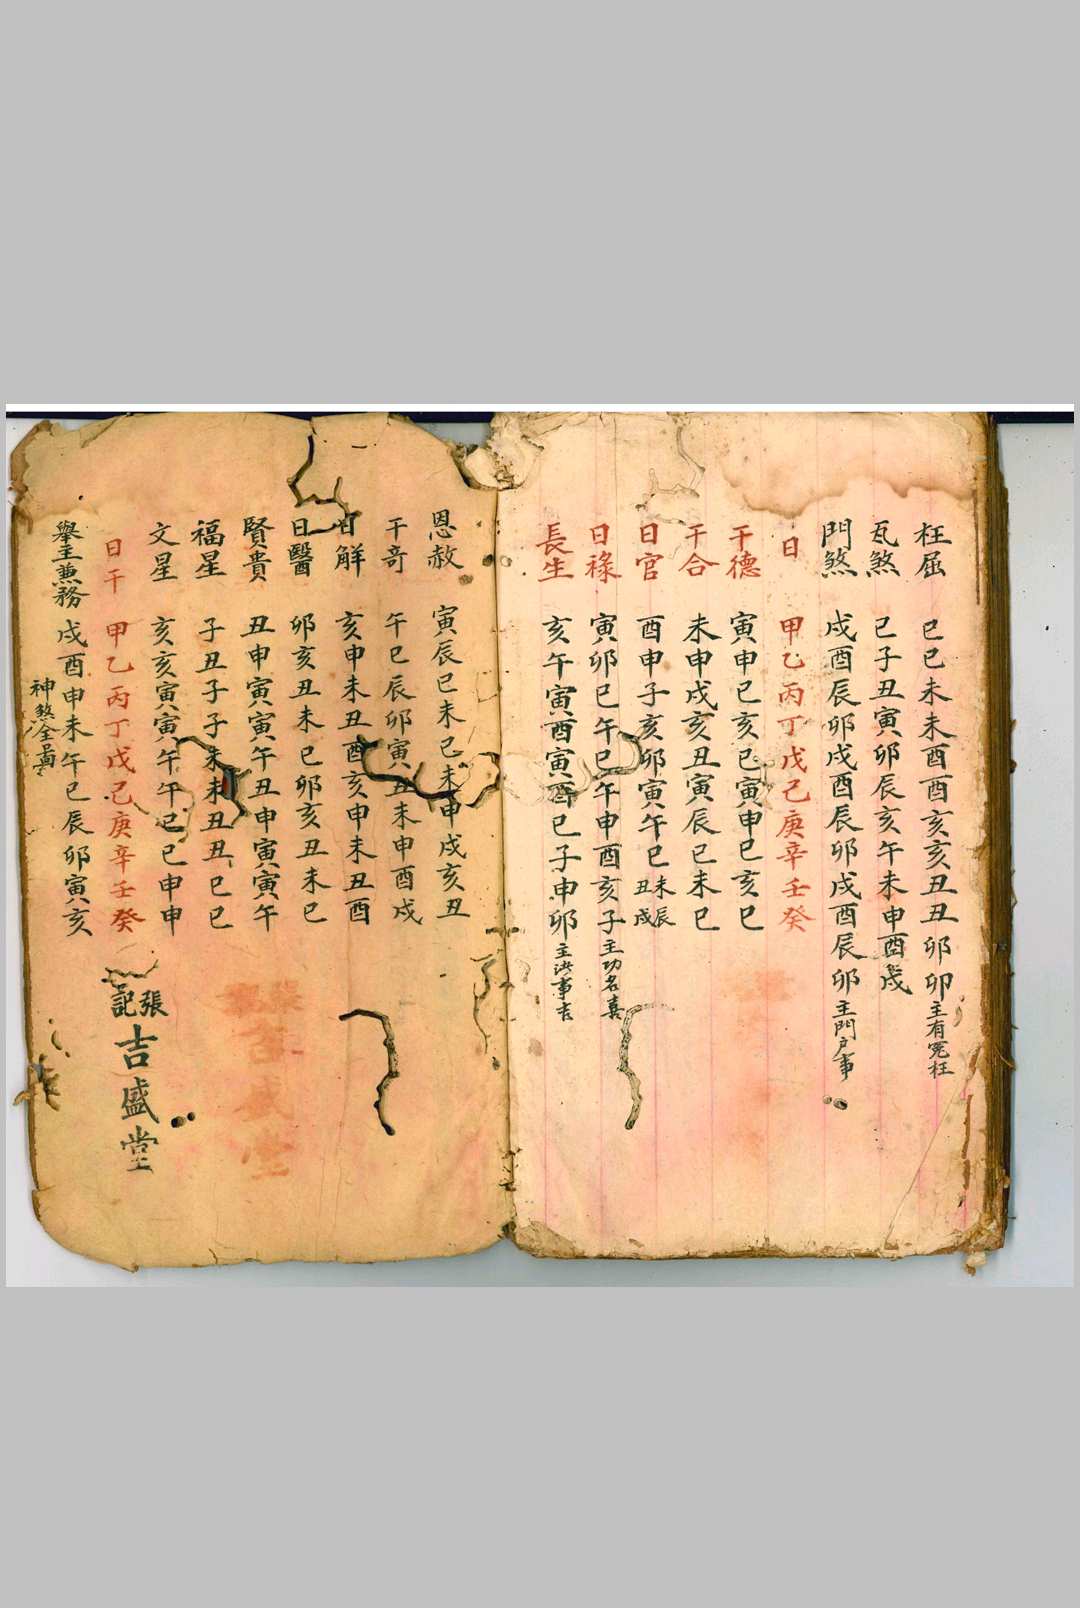 枉屈 巳巳未未酉酉亥亥丑丑卯卯主有冤枉
瓦煞 巳子丑寅卯辰亥午未申酉戌
門煞 戌酉辰卯戌酉辰卯戌酉辰卯主門戶事
日 甲乙丙丁戊己庚辛壬癸
干德 寅申巳亥巳寅申巳亥巳
干合 未申戌亥丑寅辰巳未巳
日官 酉申子亥卯寅午巳未辰丑戌
日祿 寅卯巳午巳午申酉亥子主功名喜
長生 亥午寅酉寅酉巳子申卯主事吉
恩赦 寅辰巳未巳未申戌亥丑
干奇 午巳辰卯寅丑未申酉戌
日解 亥申未丑酉亥申未丑酉
日醫 卯亥丑未巳卯亥丑未巳
賢貴 丑申寅寅午丑申寅寅午
福星 子丑子子未未丑丑巳巳
文星 亥亥寅寅午午巳巳申申
日干 甲乙丙丁戊己庚辛壬癸
張記
吉盛堂
舉主兼務 戌酉申未午巳辰卯寅亥
神煞全啚